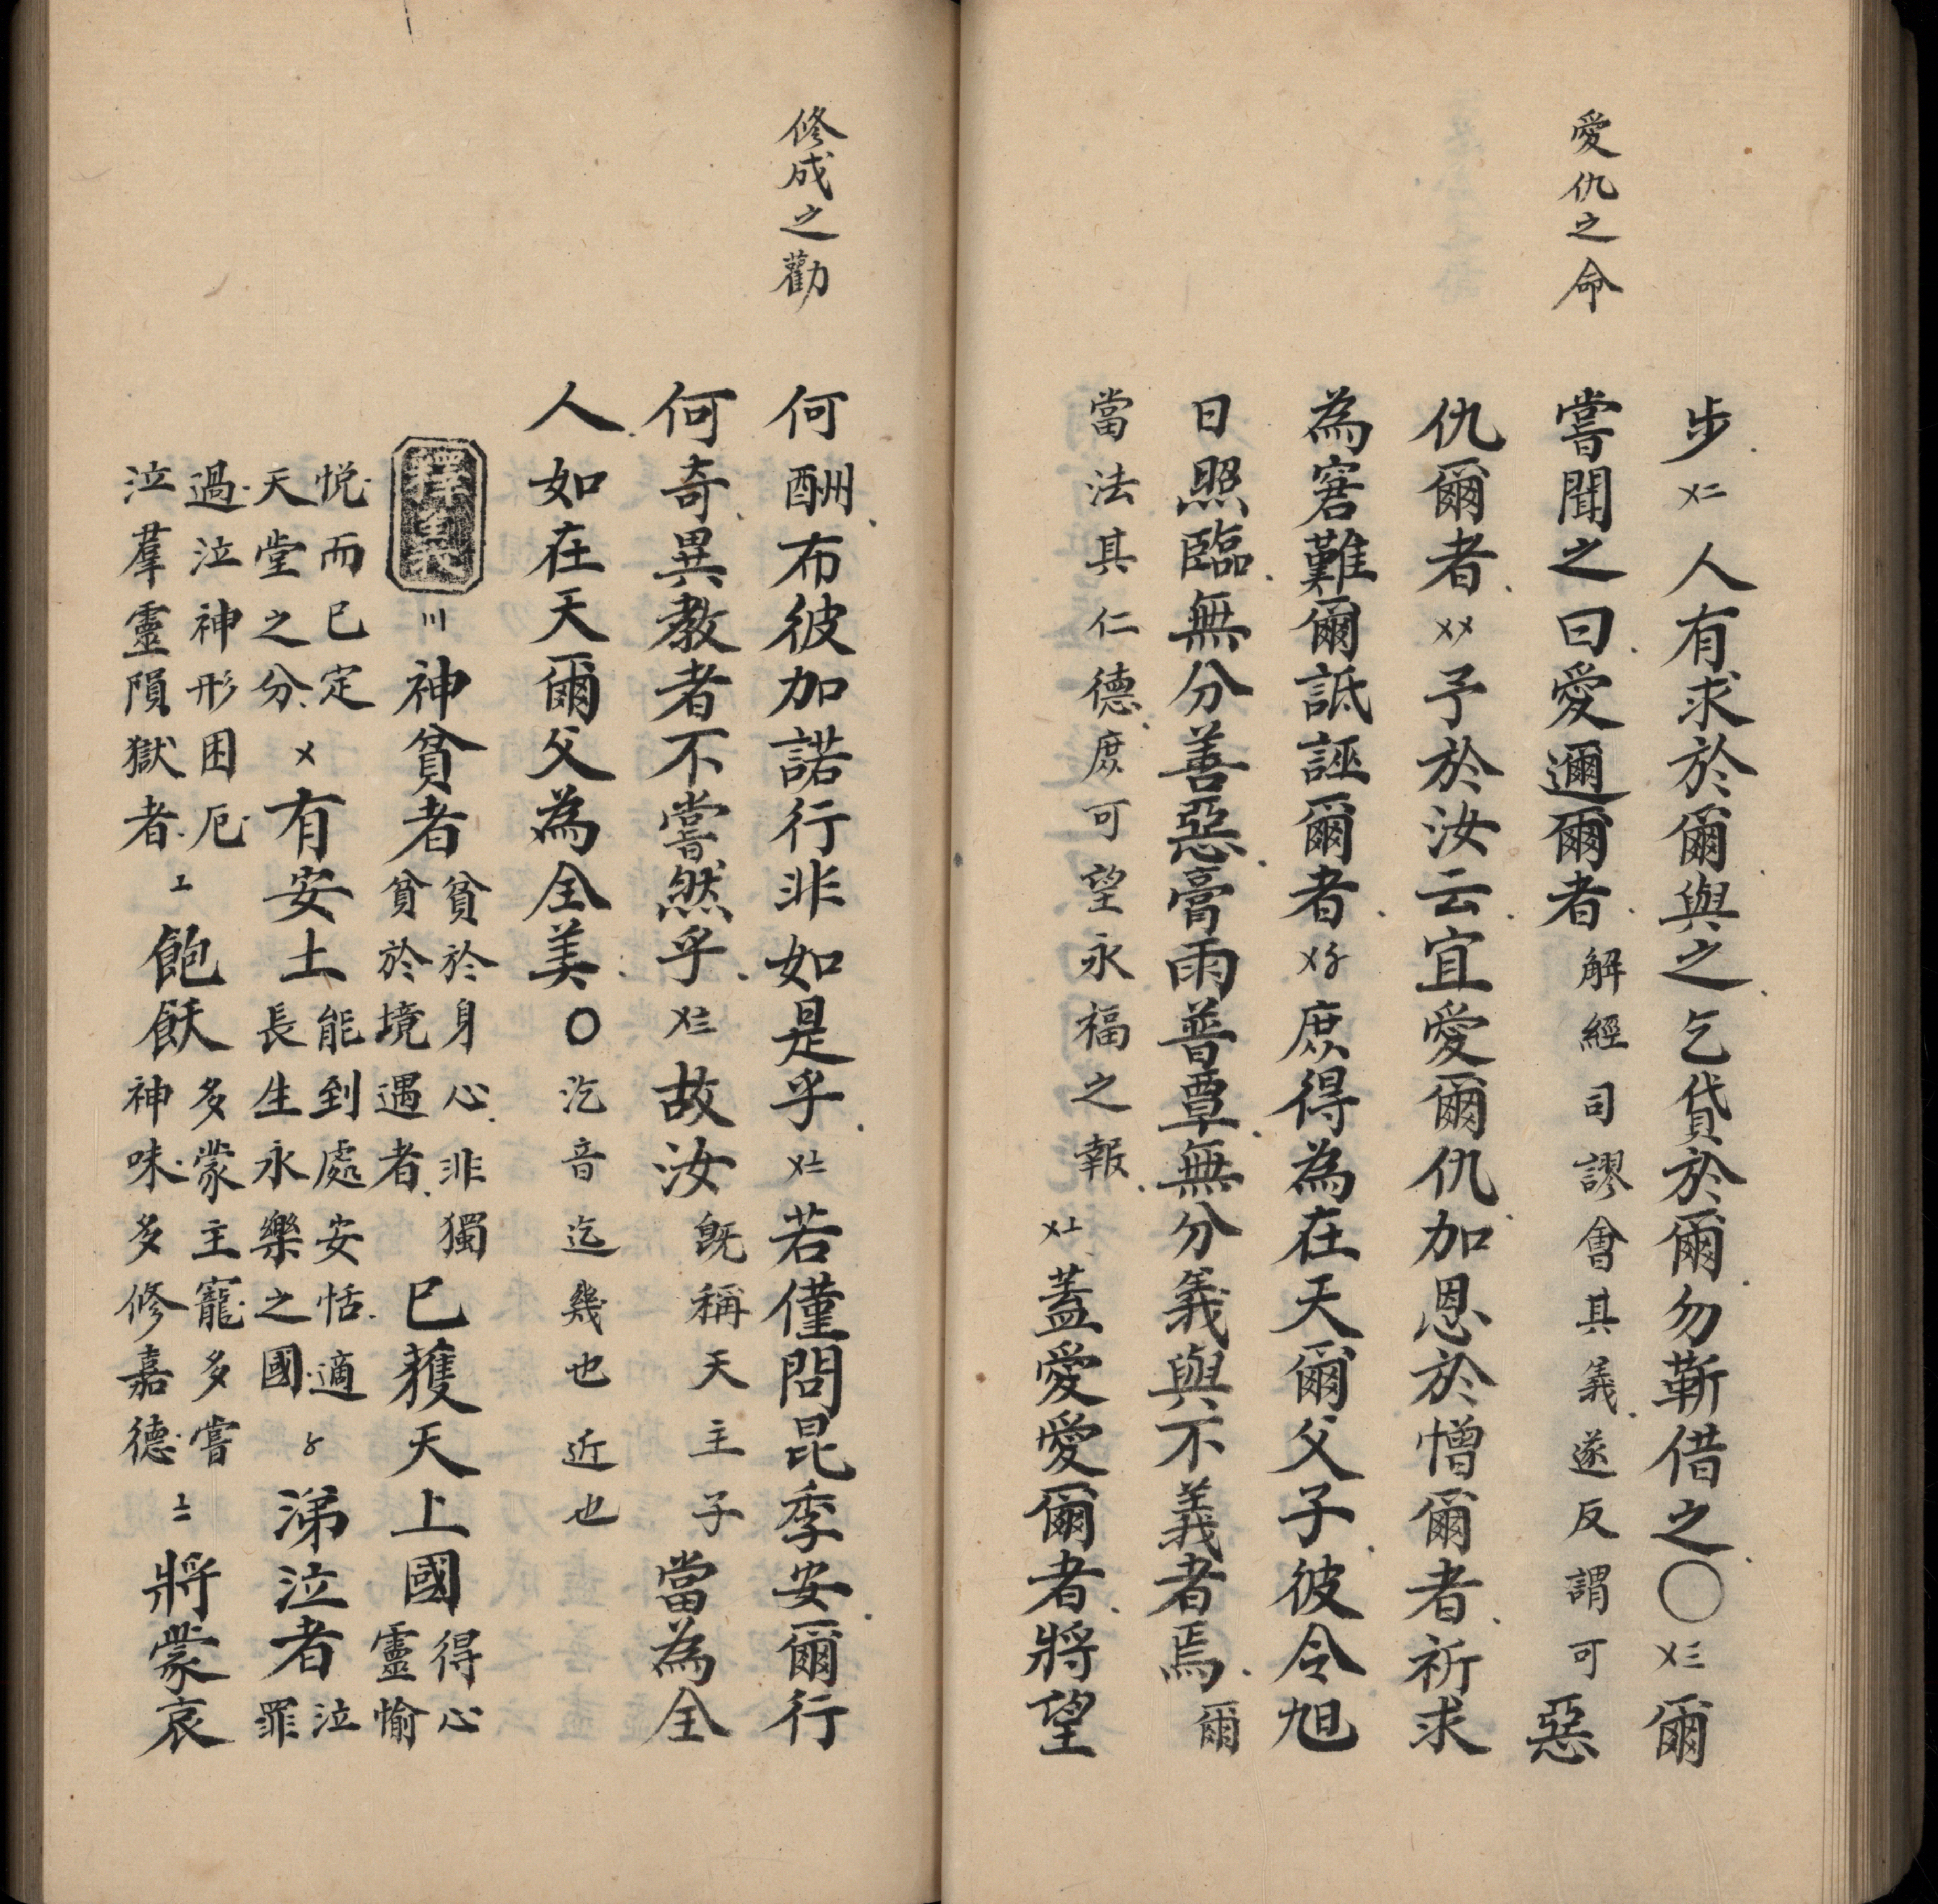 愛仇之命
步〤二人有求於爾與之乞貸於爾勿靳借之〇〤三爾
嘗聞之曰愛邇爾者解經司謬會其義遂反謂可惡
仇爾者〤〤予於汝云宜愛爾仇加恩於憎爾者祈求
為窘難爾詆誣爾者〤〥庶得為在天爾父子彼令旭
日照臨無分善惡膏雨普覃無分義與不義者焉爾
當法其仁德庶可望永福之報〤〦蓋愛愛爾者將望
修成之勸
何酬布彼加諾行非如是乎〤〧若僅問昆季安爾行
何奇異教者不嘗然乎〤〨故汝既稱天主子當為全
人如在天爾父為全美〇汔音迄幾也近也
釋義〣神貧者貧於身心非獨貧於境遇者已獲天上國得心靈愉
悅而已定天堂之分〤有安土能到處安恬適長生永樂之國〥涕泣者泣罪
過泣神形困厄泣羣靈隕獄者〦飽飫多蒙主寵多嘗神味多修嘉德〧將蒙哀